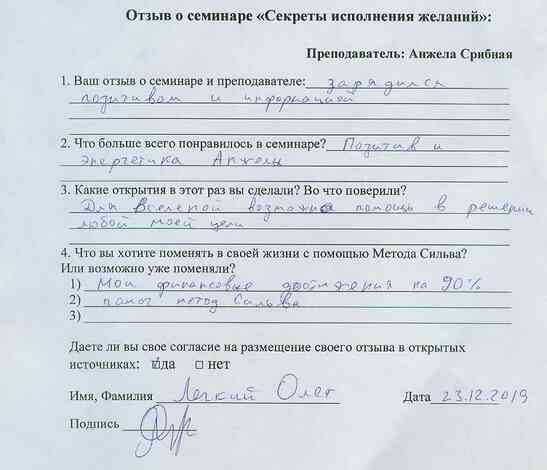 Отзыв о семинаре «Секреты исполнения желаний»:
Преподаватель: Анжела Срибная
1. Ваш отзыв о семинаре и преподавателе: зарядился
позитивом и информацией
2. Что больше всего понравилось в семинаре? Позитив и
энергетика Анжелы
3. Какие открытия в этот раз вы сделали? Во что поверили?
Для Вселеной возможно помощь в решении
любой моей цели
4. Что вы хотите поменять в своей жизни с помощью Метода Сильва?
Или возможно уже поменяли?
1) Мои финансовые достижения на 90%
2) помог метод Сильва
3)
Даете ли вы свое согласие на размещение своего отзыва в открытых
источниках: ☑да □ нет
Имя, Фамилия Легкий Олег Дата 23.12.2019
Подпись